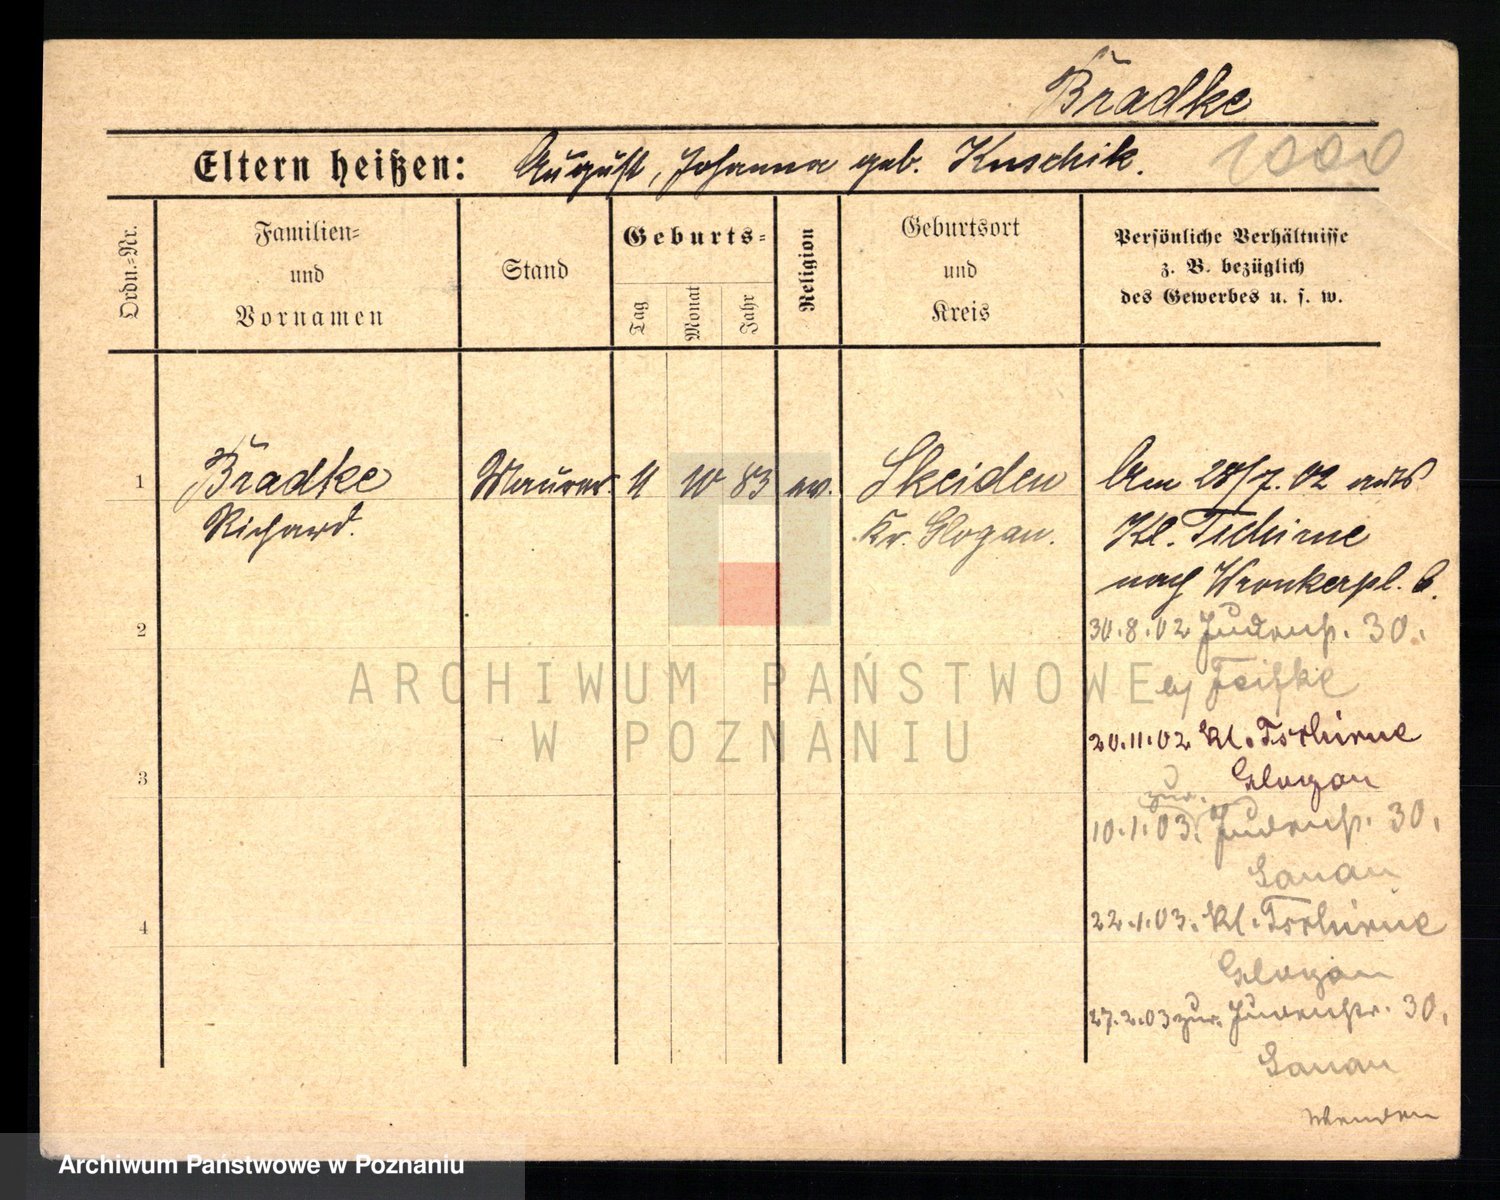 Bradke
Eltern heißen: August, Johanna geb. Kuschik.
1000
Ordn.-Nr.
Familien-
und
Vornamen
Stand
Geburts-
Tag
Monat
Jahr
Religion
Geburtsort
und
Kreis
Persönliche Verhältnisse
z. B. bezüglich
des Gewerbes u. s. w.
1
Bradke
Richard.
Maurer
11 10 83 ev.
Skeiden
Kr. Glogau.
Am 28/7. 02 aus
Kl. Tschirne
nach Wronkerpl. 6.
2
30.8.02 Judenstr. 30.
b/
20.11.02 Kl. Tschirne
Glogau
3
zur.
10.1.03. Judenstr. 30.
4
22.1.03. Kl. Tschirne
Glogau
27.2.03 zur. Judenstr. 30.
Wenden
ARCHIWUM PAŃSTWOWE
W POZNANIU
Archiwum Państwowe w Poznaniu